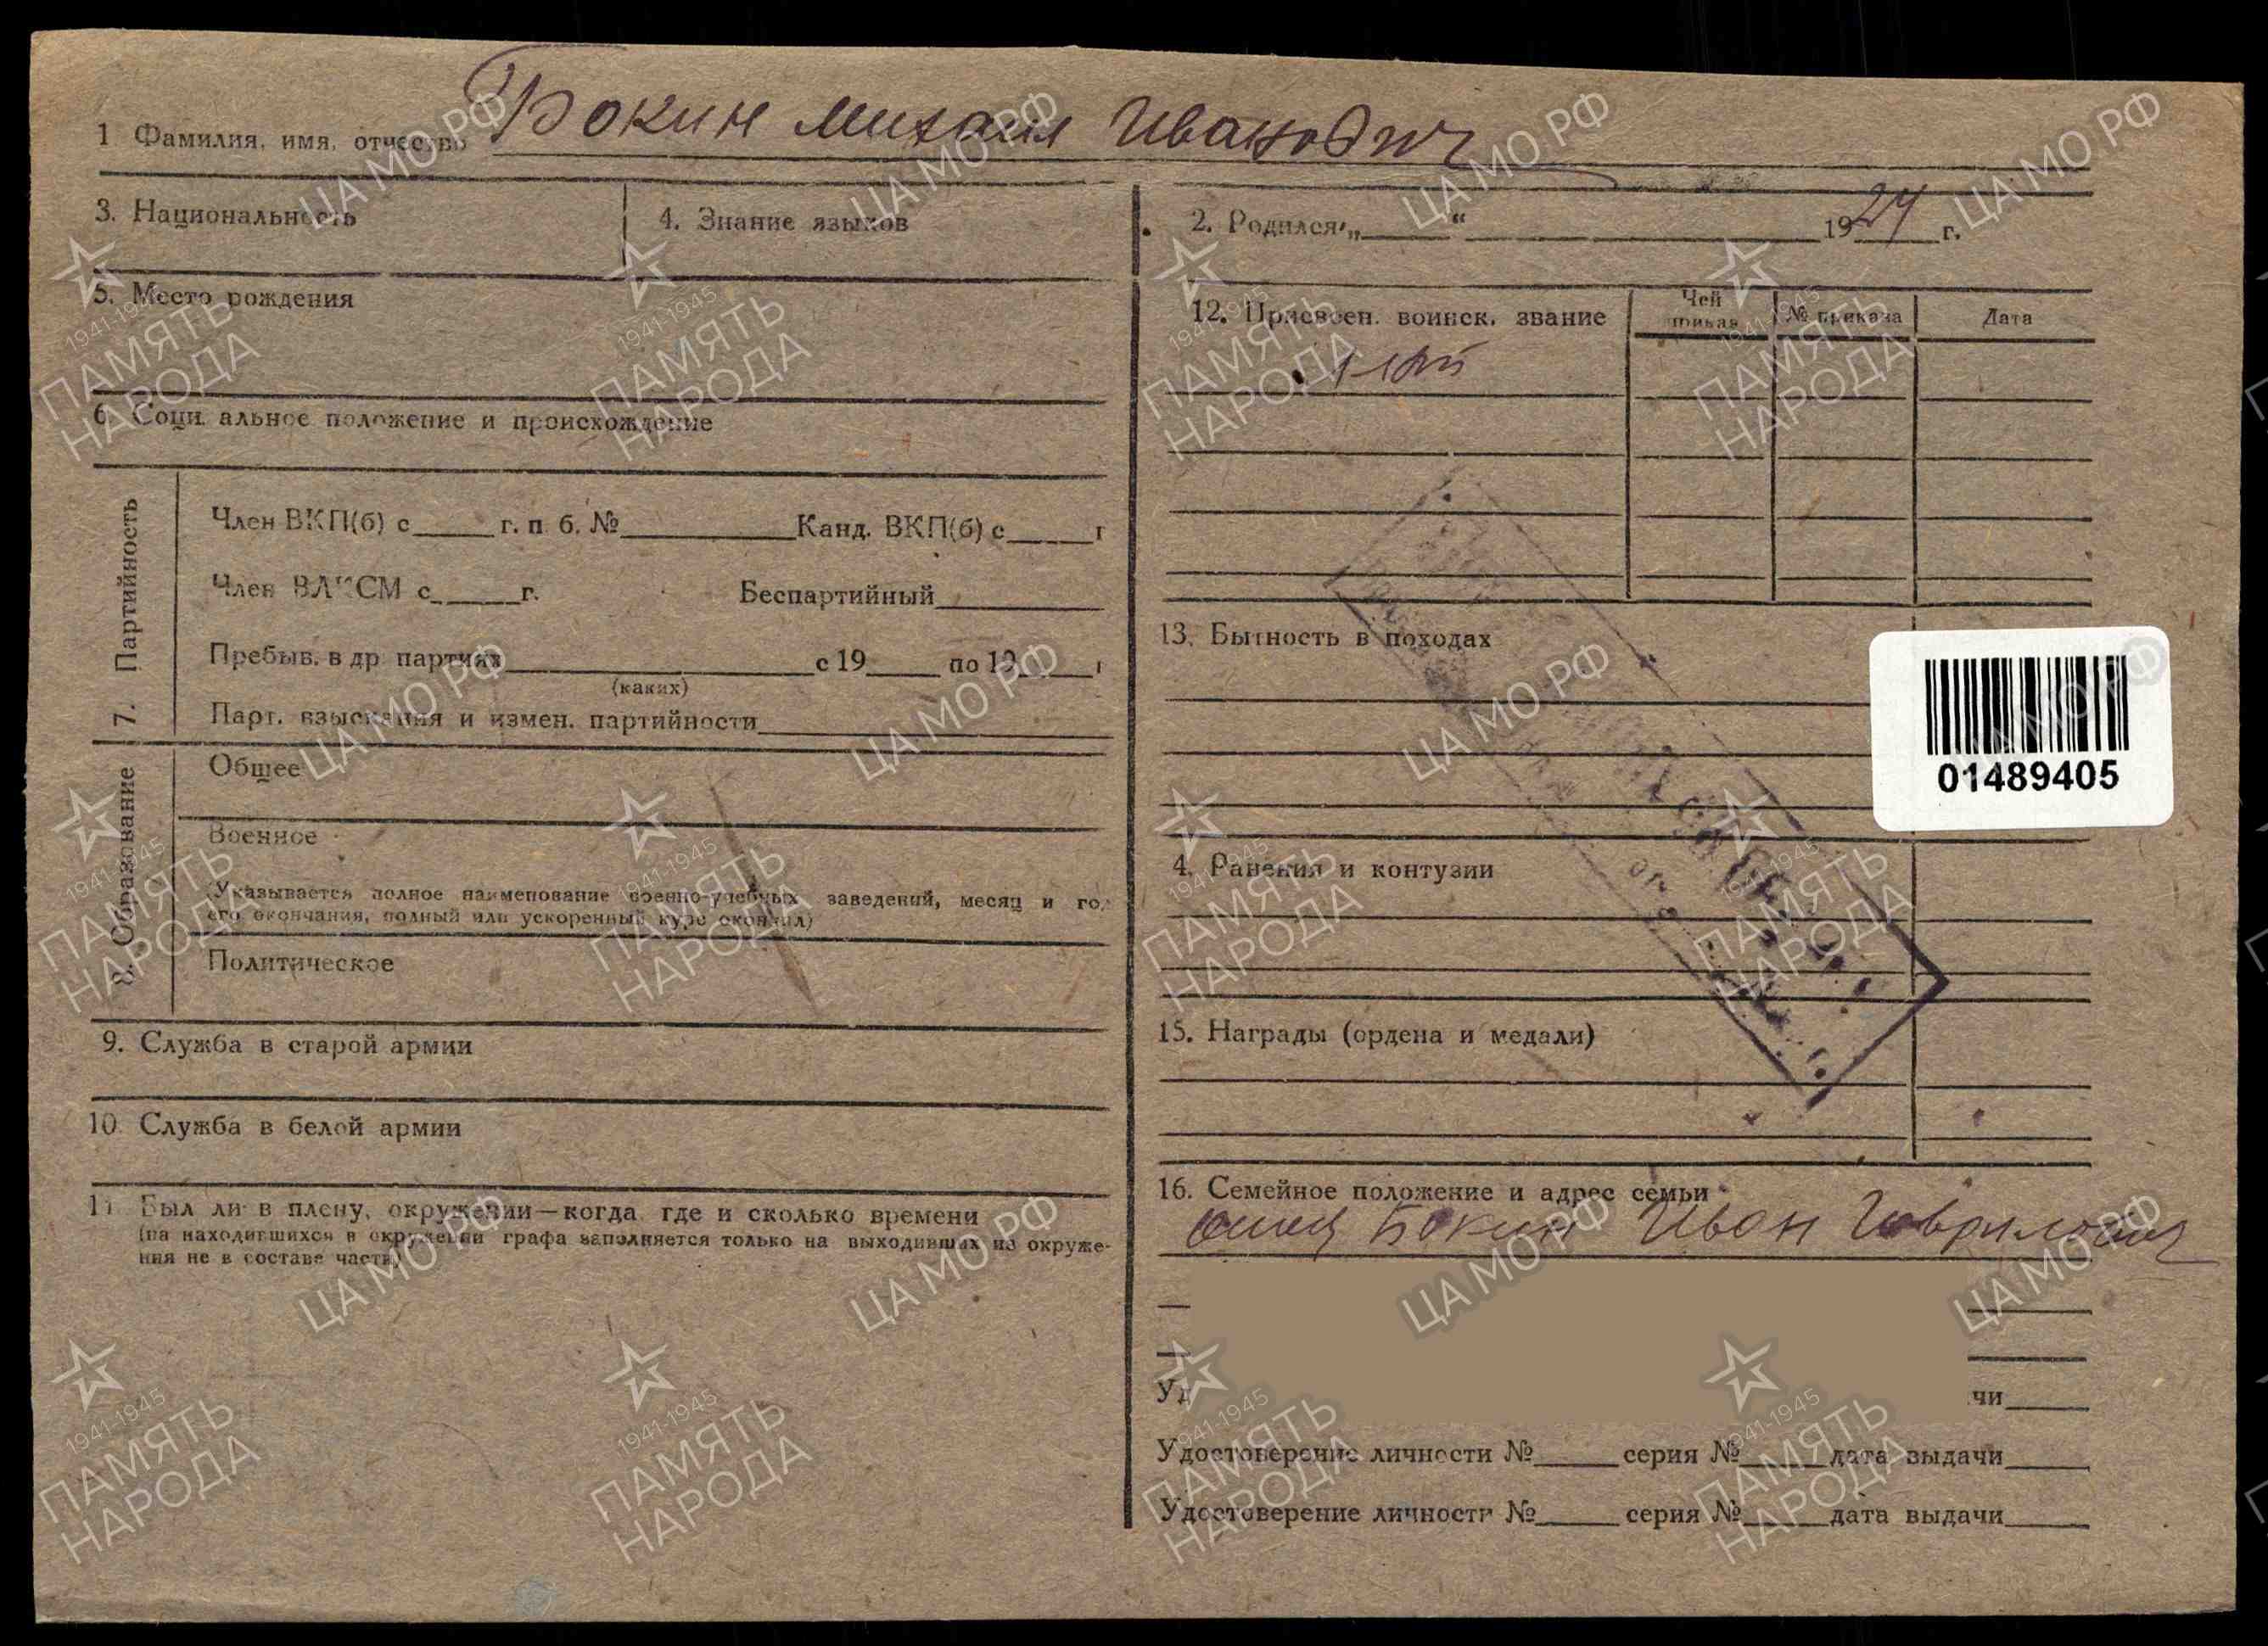 1 Фамилия, имя, отчество Бокин Михаил Иванович
3. Национальность
4. Знание языков
2. Родился „ “ 1924 г.
5. Место рождения
6. Социальное положение и происхождение
7. Партийность
Член ВКП(б) с г. п б. № Канд. ВКП(б) с г
Член ВЛКСМ с г. Беспартийный
Пребыв. в др партиях с 19 по 19 г
(каких)
Парт. взыскания и измен. партийности
8. Образование
Общее
Военное
(Указывается полное наименование военно-учебных заведений, месяц и го,
его окончания, полный или ускоренный курс окончил)
Политическое
9. Служба в старой армии
10 Служба в белой армии
11 Был ли в плену, окружении—когда где и сколько времени
(на находившихся в окружении графа заполняется только на выходивших из окруже-
ния не в составе части)
12. Присвоен. воинск. звание
Чей
приказ
№ приказа
Дата
13. Бытность в походах
01489405
4. Ранения и контузии
15. Награды (ордена и медали)
16. Семейное положение и адрес семьи
отец Бокин Иван Гаврилович
Уд чи
Удостоверение личности № серия № дата выдачи
Удостоверение личности № серия № дата выдачи
ЦА МО РФ
1941-1945
ПАМЯТЬ
НАРОДА